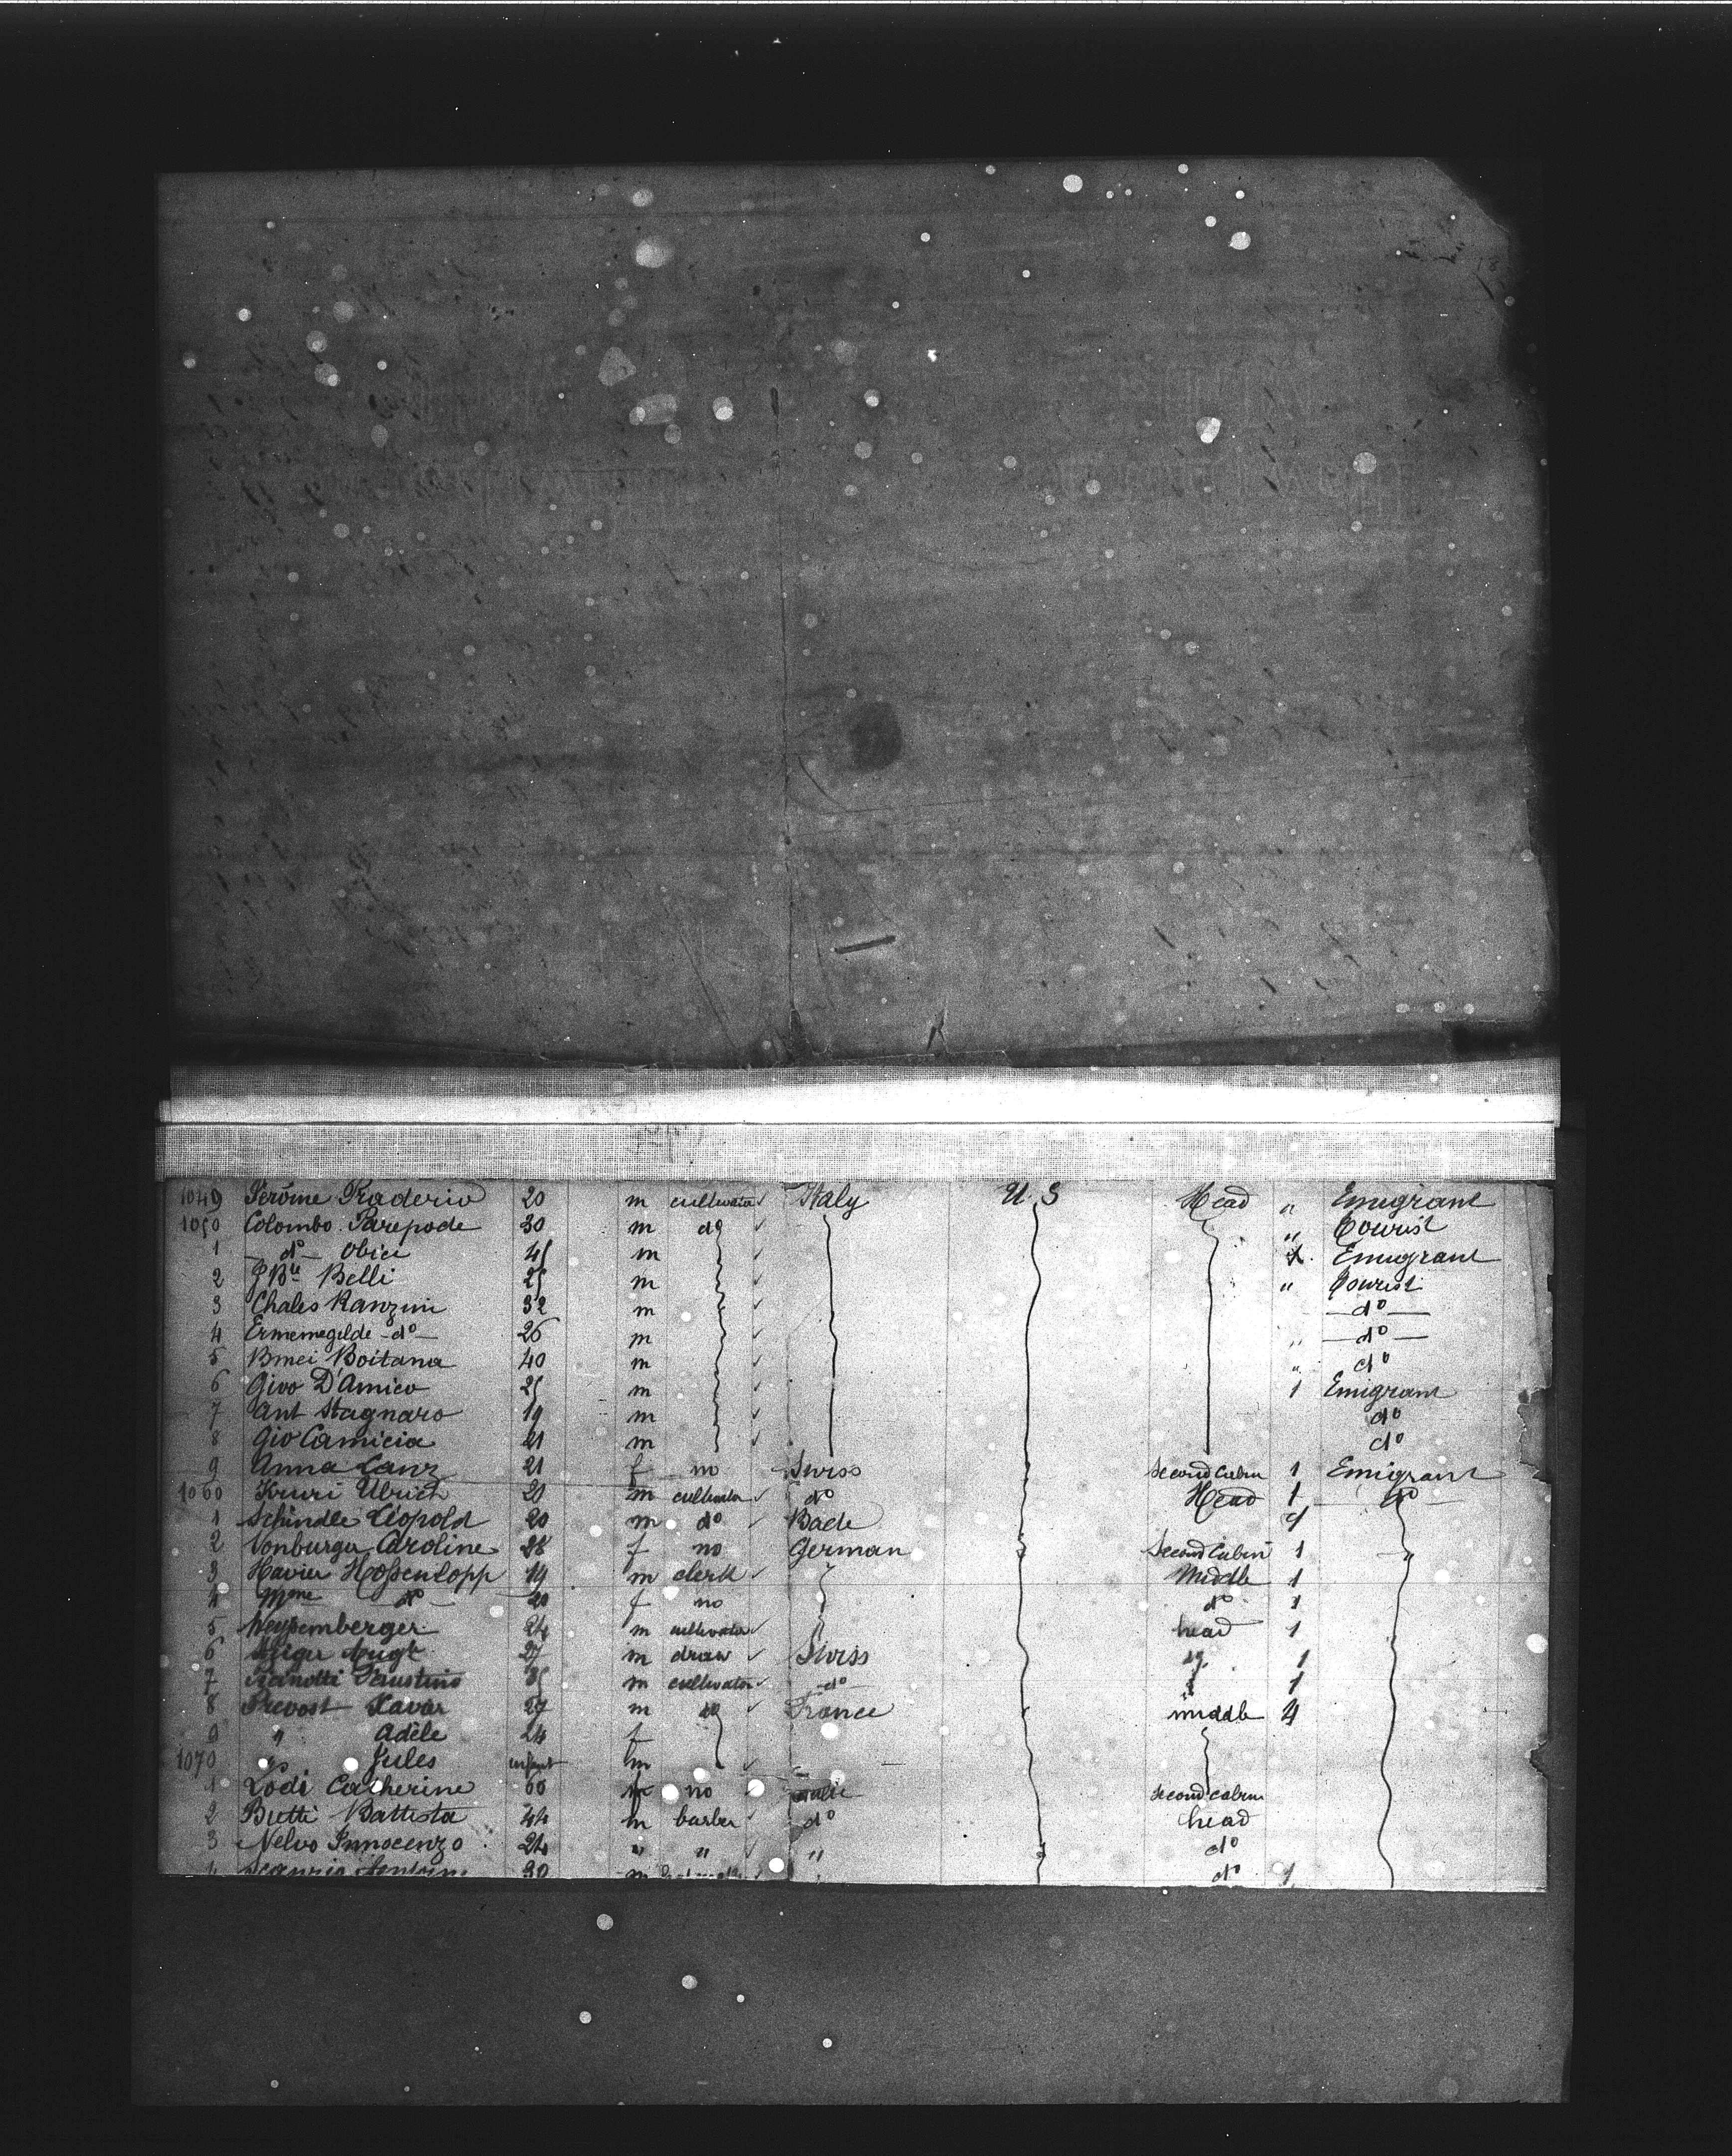 1049 Jerôme Praderio 20 m cultivator Italy U. S Head " Emigrant
1050 Colombo Parepode 30 m do " Tourist
1 – do – Obici 45 m Emigrant
2 Belli 25 m " Tourist
3 Chales Ranzini 32 m – do –
4 Ermemegilde – do – 26 m " – do –
5 Boitana 40 m " do
6 Giov D'Amico 25 m 1 Emigrant
7 Ant Stagnaro 19 m do
8 Gio Camicia 21 m do
9 Anna Lanz 21 f no Swiss Second Cabin 1 Emigrant
1060 Ulrich 21 m cultivator do Head 1 – do –
1 Schindle Léopold 20 m do Bade
2 Vonburga Caroline 28 f no German Second Cabin 1 "
3 Havier 19 m clerk Middle 1
4 Mme do – 20 f no do 1
5 24 m cultivator head 1
6 27 m draw Swiss 1
7 Faustino 35 m cultivator – do – 1
8 Prevost Xavier 27 m do France middle 4
9 " Adèle 24 f
1070 " Jules infant m
1 Lodi Catherine 60 f no Italie second cabin
2 Butti Battista 44 m barber do head
3 Nelvo Innocenzo 24 " " " do
4 30 m do 1